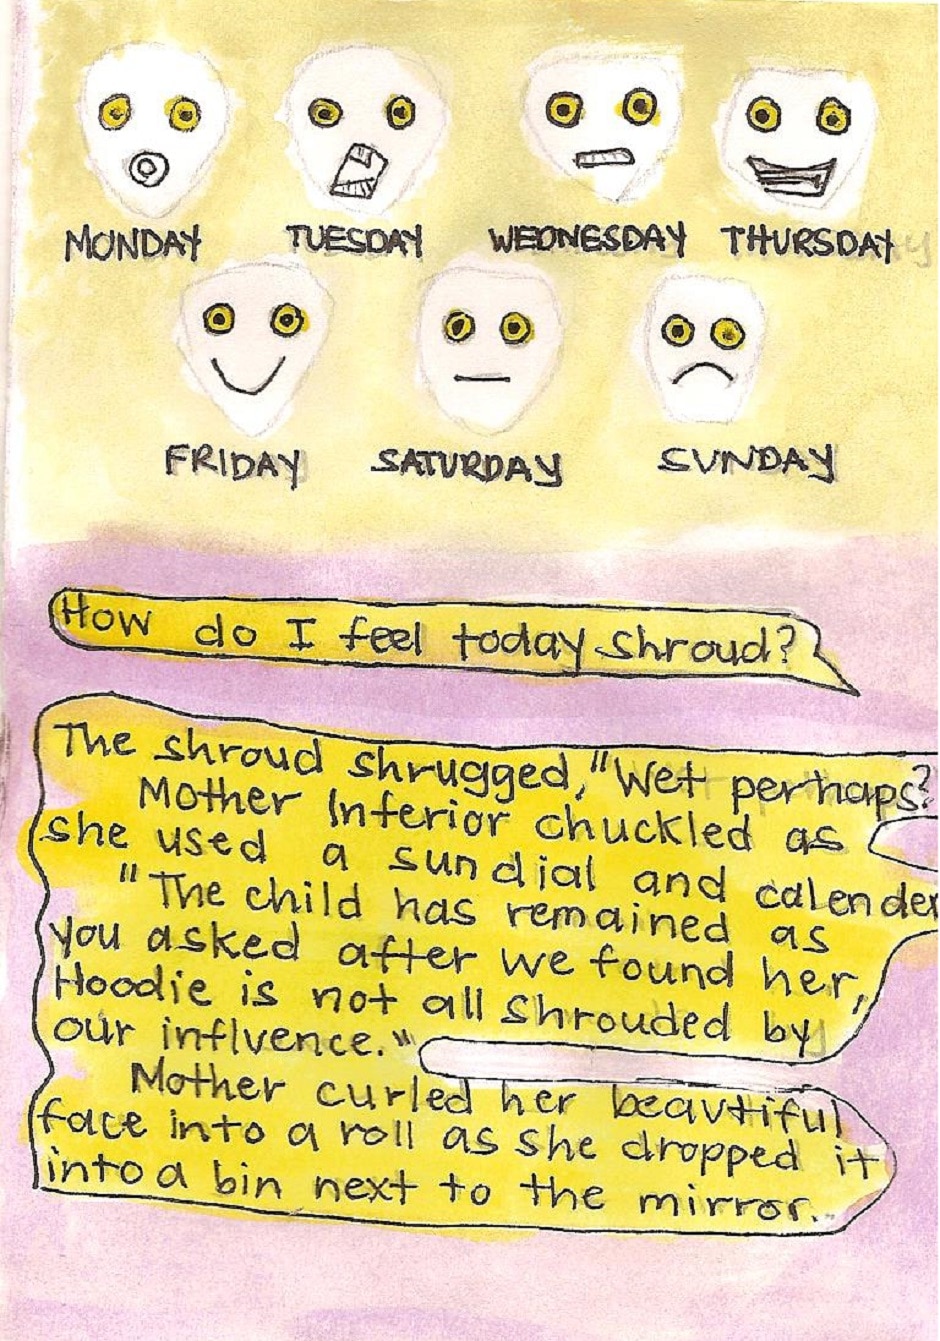 MONDAY TUESDAY WEDNESDAY THURSDAY
FRIDAY SATURDAY SUNDAY
How do I feel today shroud?
The shroud shrugged, "Wet perhaps?
Mother Inferior chuckled as
she used a sundial and calender
"The child has remained as
you asked after we found her,
Hoodie is not all shrouded by
our influence."
Mother curled her beautiful
face into a roll as she dropped it
into a bin next to the mirror.